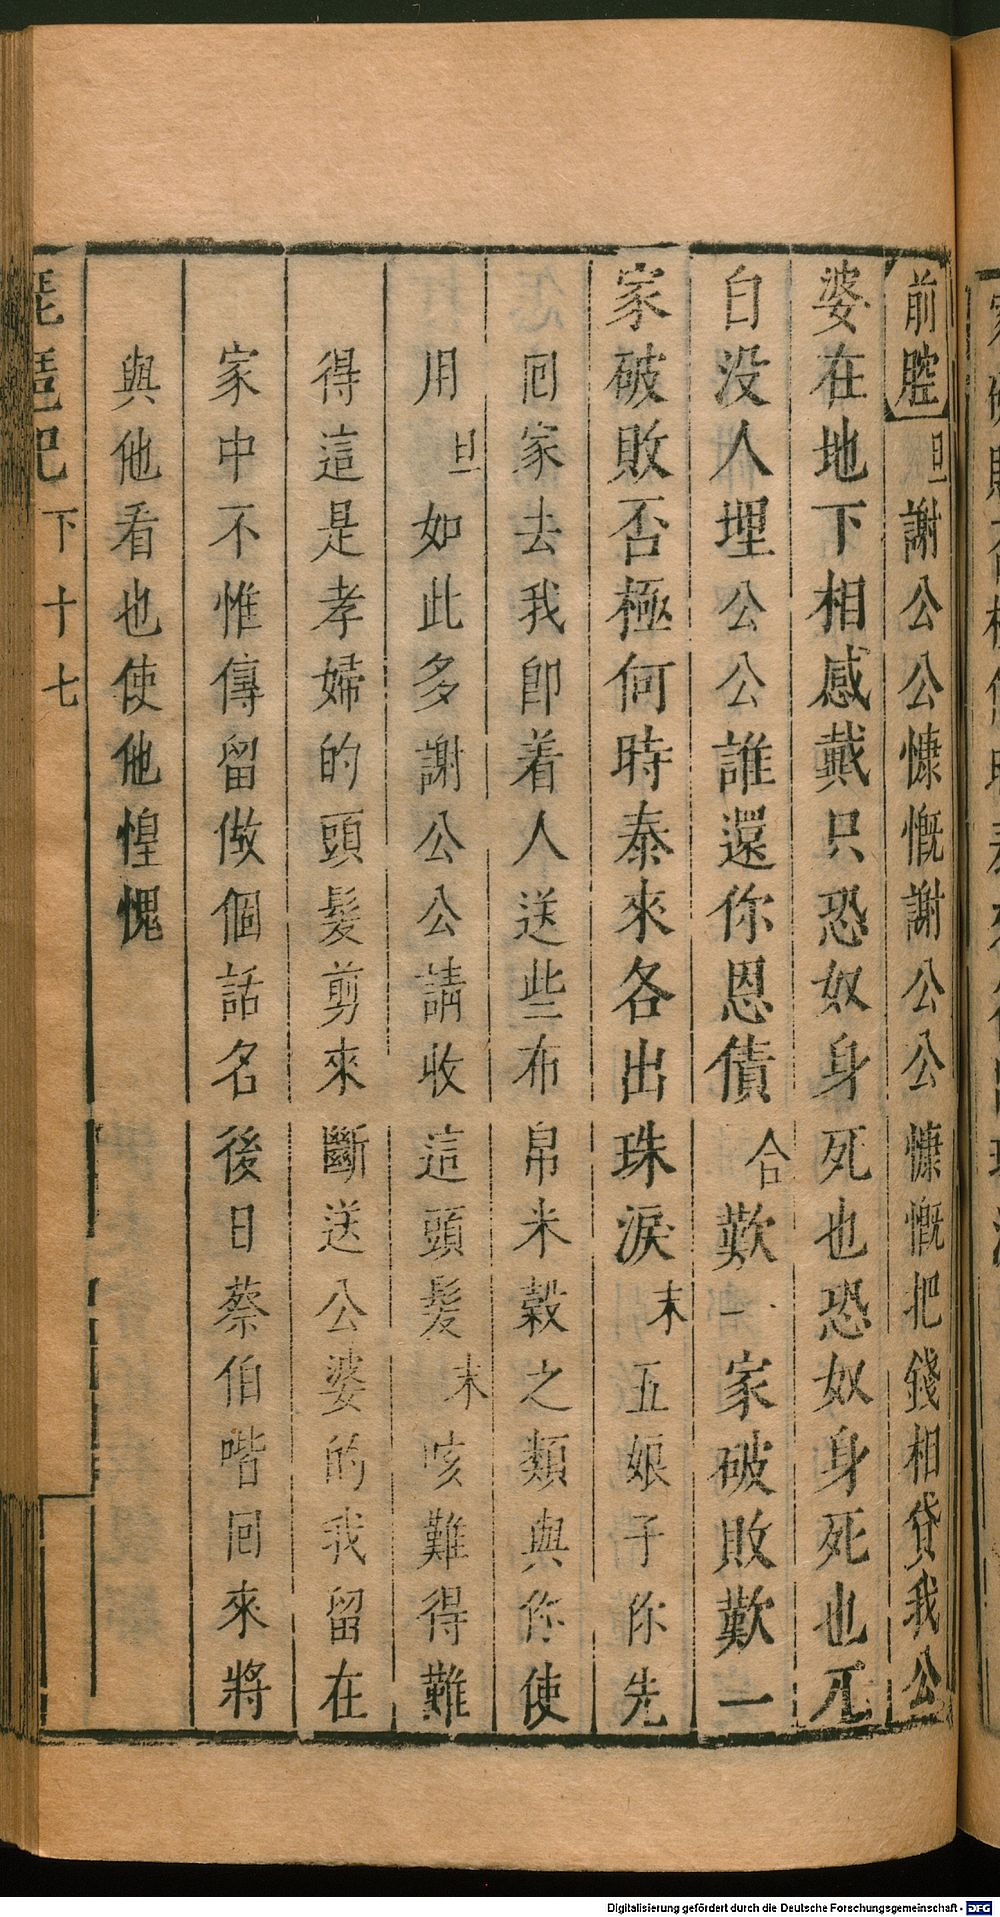 前腔 旦 謝公公慷慨謝公公慷慨把錢相貸我公
婆在地下相感戴只恐奴身死也恐奴身死也兀
自没人埋公公誰還你恩債 合 歎一家破敗歎一
家破敗否極何時泰來各出珠淚 末 五娘子你先
囘家去我卽着人送些布帛米穀之類與你使
用 旦 如此多謝公公請收這頭髮 末 咳難得難
得這是孝婦的頭髮剪來斷送公婆的我留在
家中不惟傳留做個話名後日蔡伯喈囘來將
與他看也使他惶愧
琵琶記 下 十七
Digitalisierung gefördert durch die Deutsche Forschungsgemeinschaft - DFG